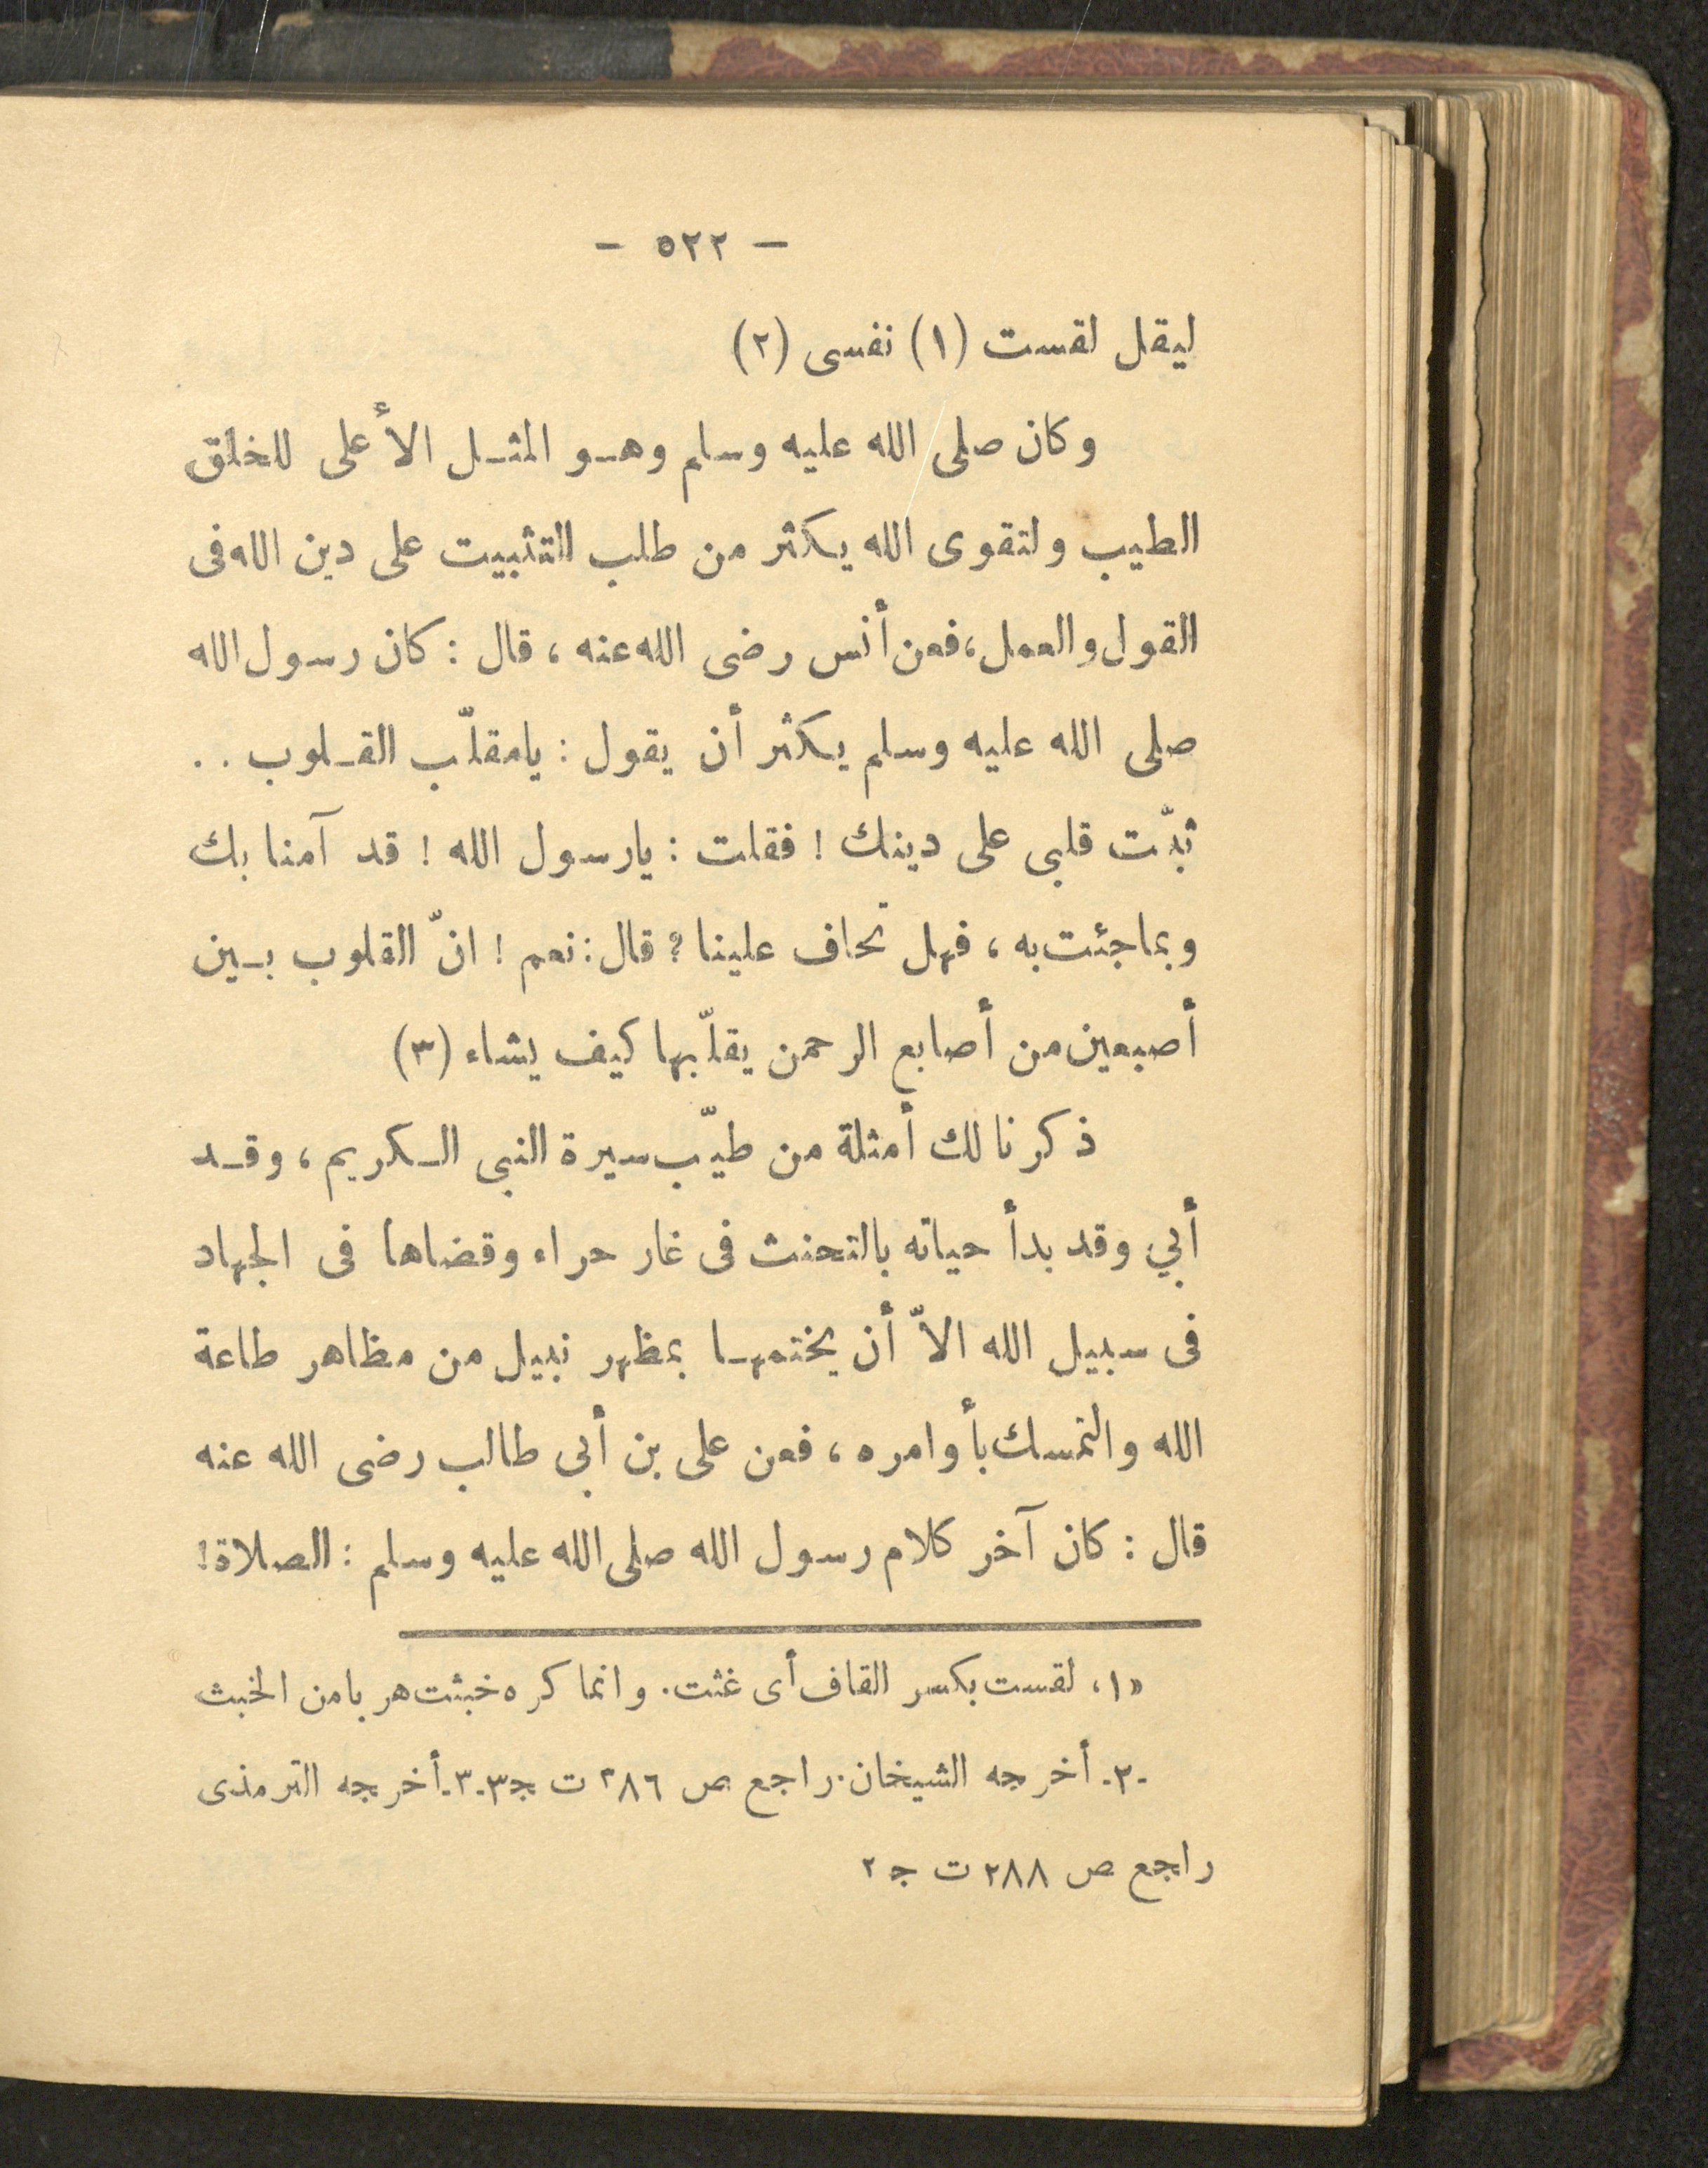 — ٥٢٢ —
ليقل لقست (١) نفسى (٢)
وكان صلى الله عليه وسلم وهو المثل الأعلى للخلق
الطيب ولتقوى الله يكثر من طلب التثبيت على دين الله فى
القول والعمل، فعن أنس رضى الله عنه ، قال : كان رسول الله
صلى الله عليه وسلم يكثر أن يقول : يامقلّب القلوب . .
ثبّت قلبى على دينك ! فقلت : يارسول الله ! قد آمنا بك
وبماجئت به ، فهل تخاف علينا ؟ قال : نعم ! انّ القلوب بين
أصبعين من أصابع الرحمن يقلّبها كيف يشاء (٣)
ذكرنا لك أمثلة من طيّب سيرة النبى الكريم ، وقد
أبي وقد بدأ حياته بالتحنث فى غار حراء وقضاها فى الجهاد
فى سبيل الله الاّ أن يختمها بمظهر نبيل من مظاهر طاعة
الله والتمسك بأوامره ، فعن على بن أبى طالب رضى الله عنه
قال : كان آخر كلام رسول الله صلى الله عليه وسلم : الصلاة !
«١، لقست بكسر القاف أى غثت. وانما كره خبثت هربا من الخبث
-٢- أخرجه الشيخان. راجع ص ٢٨٦ ت ج٣ -٣- أخرجه الترمذى
راجع ص ٢٨٨ ت ج ٢